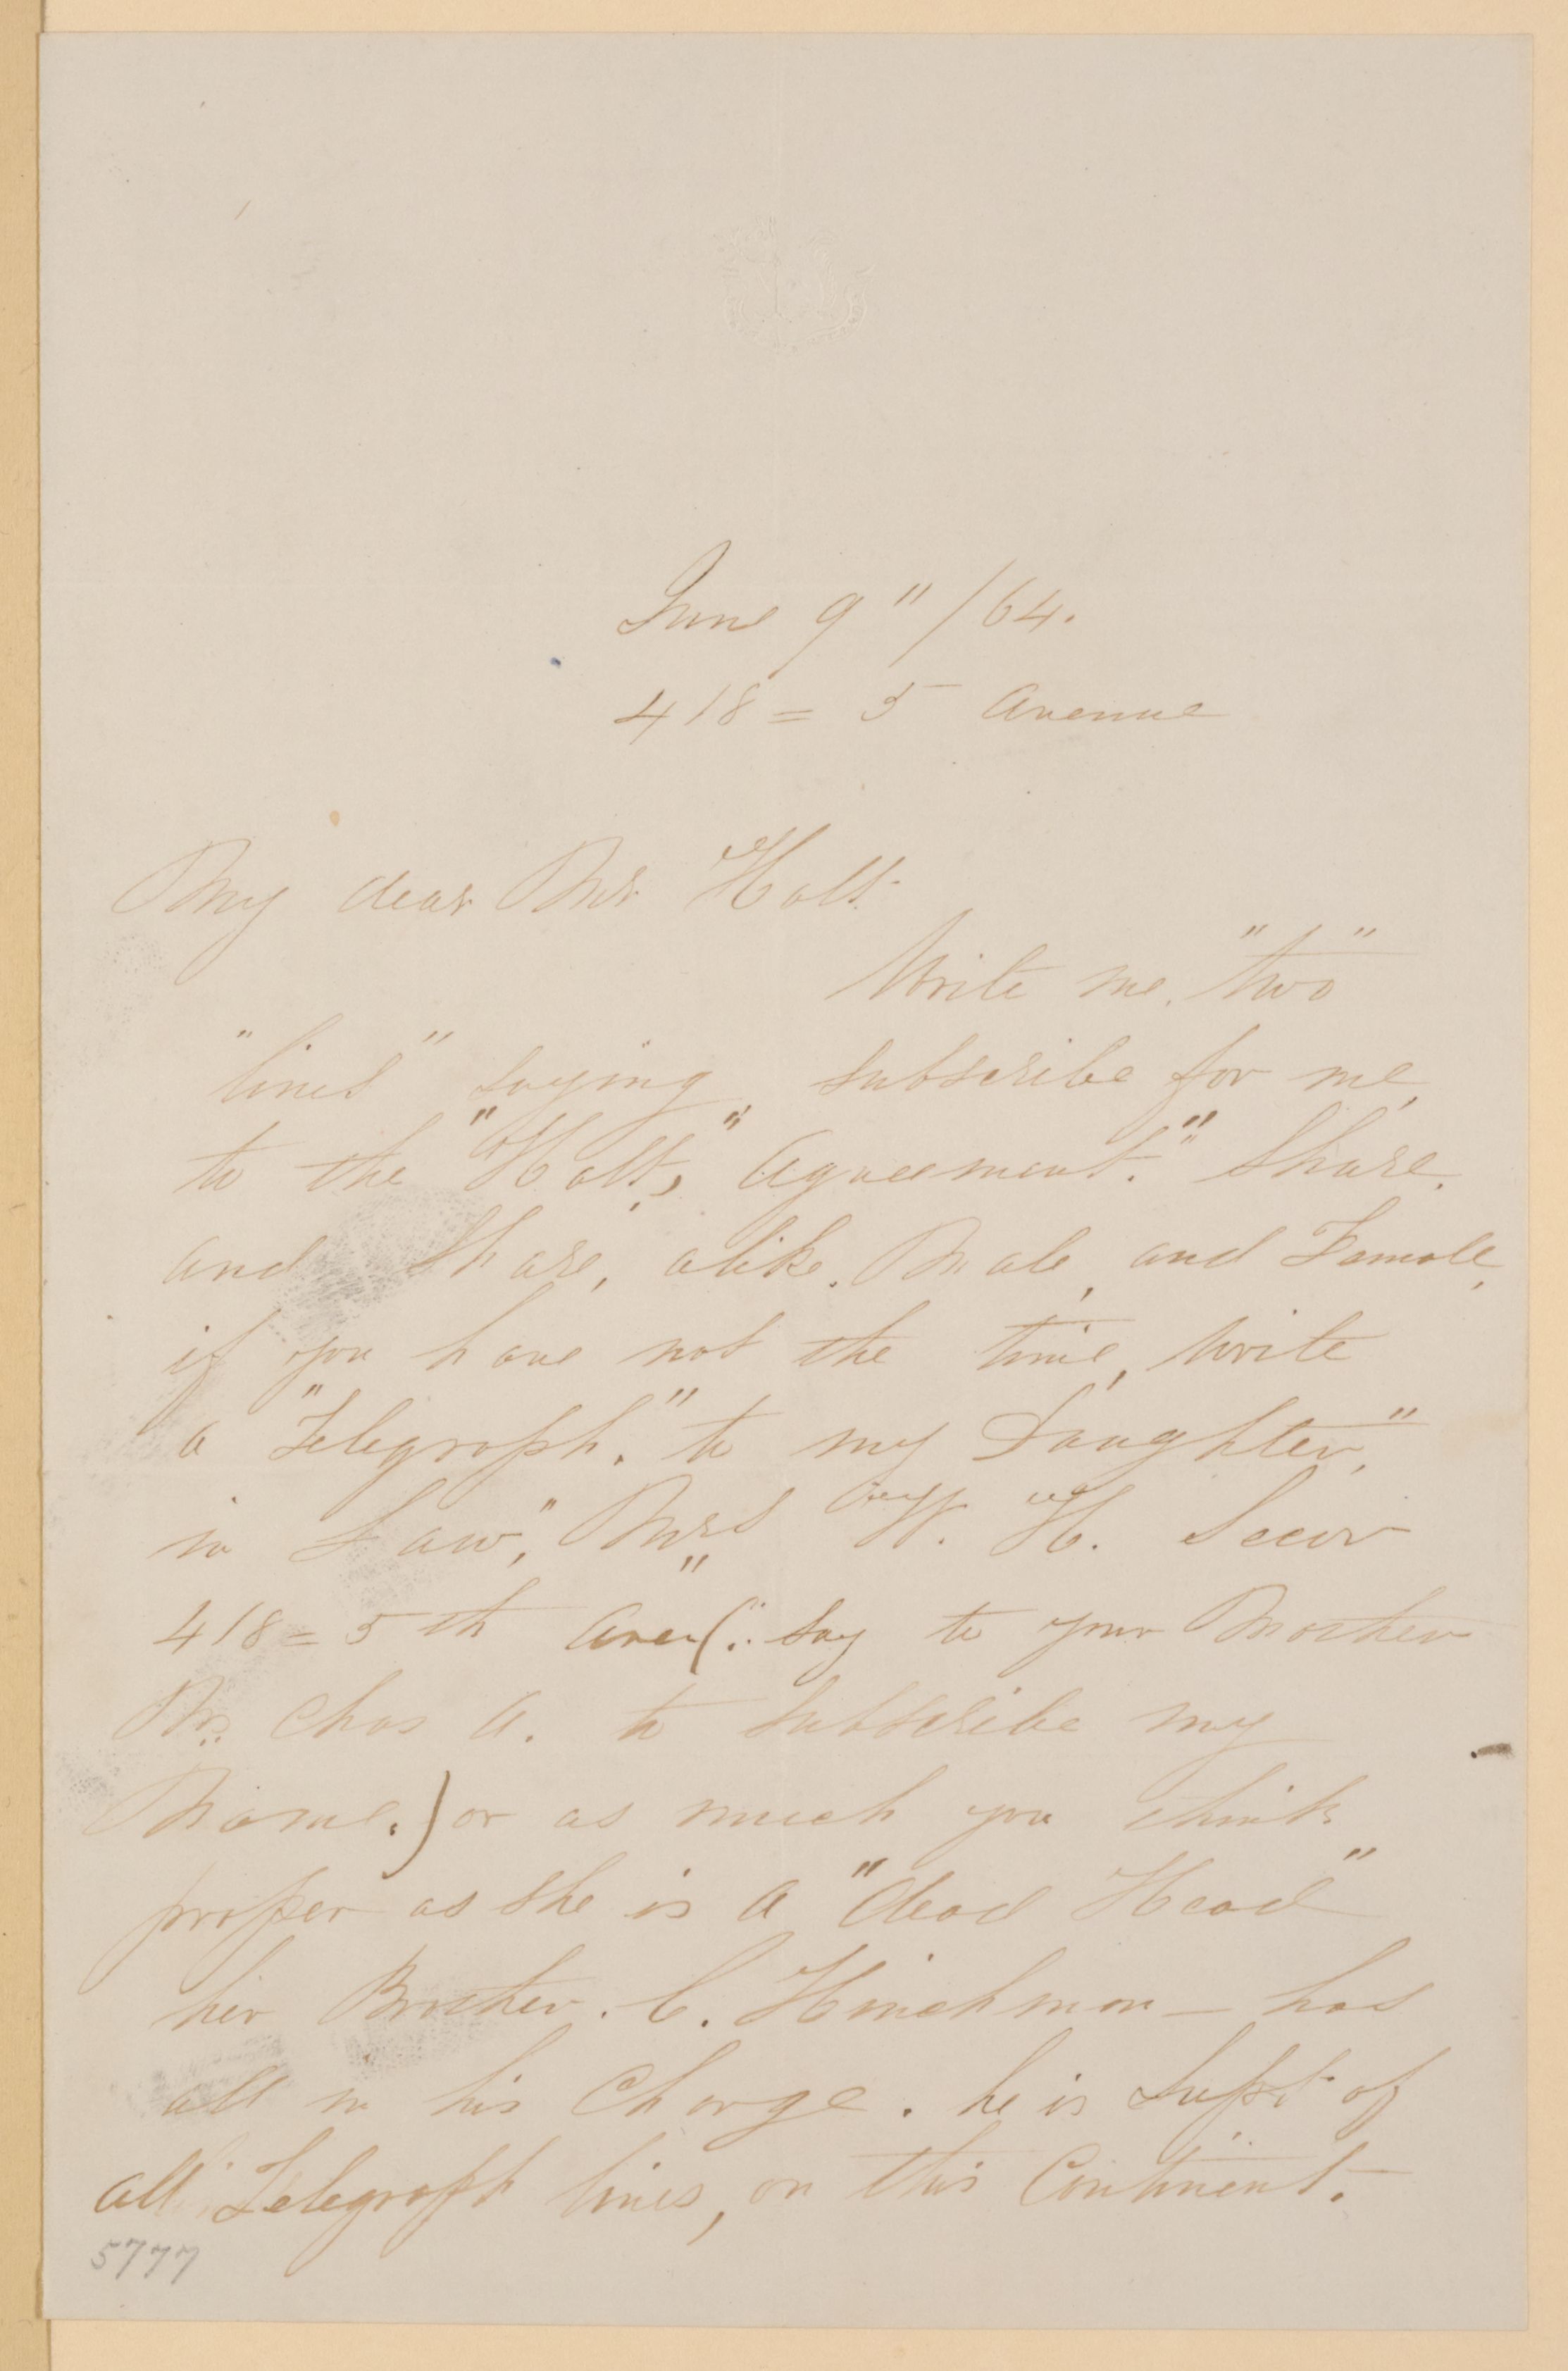 June 9"/64.
418 = 5 Avenue
My dear Mr. Holt.
Write me, "two"
"lines" saying, subscribe for me,
to the "Holt," Agreement." Share,
and Share, alike. Male, and Female,
if you have not the time, write
a "Telegraph." to my Daughter,"
in Law," Mrs W. H. Secor
418 = 5th Ave (: Say to your Mother
Mrs. Chas A. to subscribe my
Name.) or as much you think
proper as she is a "dead Head"
her Brother. C. Hinchman — has
all in his Charge. he is Supt of
all Telegraph lines, on this Continent.
5777